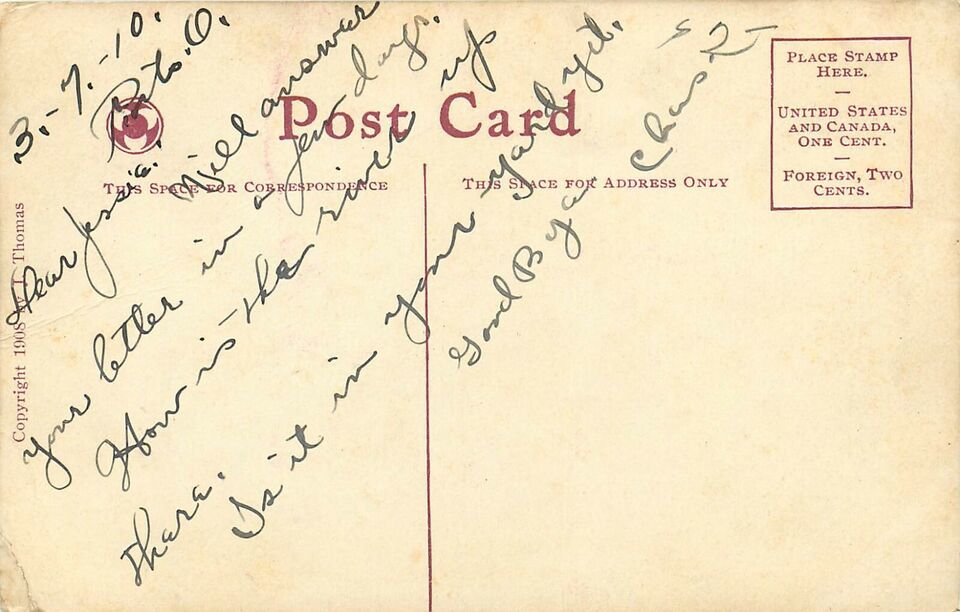 Post Card
THIS SPACE FOR CORRESPONDENCE
THIS SPACE FOR ADDRESS ONLY
PLACE STAMP
HERE.
UNITED STATES
AND CANADA,
ONE CENT.
FOREIGN, TWO
CENTS.
Copyright 1908 by L Thomas
3.-7.-10.
O.
Dear Jessie. Will answer
your letter in a few days.
How is the river up
there.
Is it in your yard yit.
Good By Chas